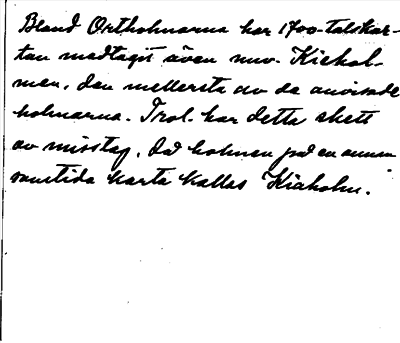 Bland Ortholmarna har 1700-talskar-
tan medtagit även nuv. Kiehol-
men, den mellersta av de anvisade
holmarna. Trol. har detta skett
av misstag, då holmen på en annan
samtida karta kallas Kieholm.